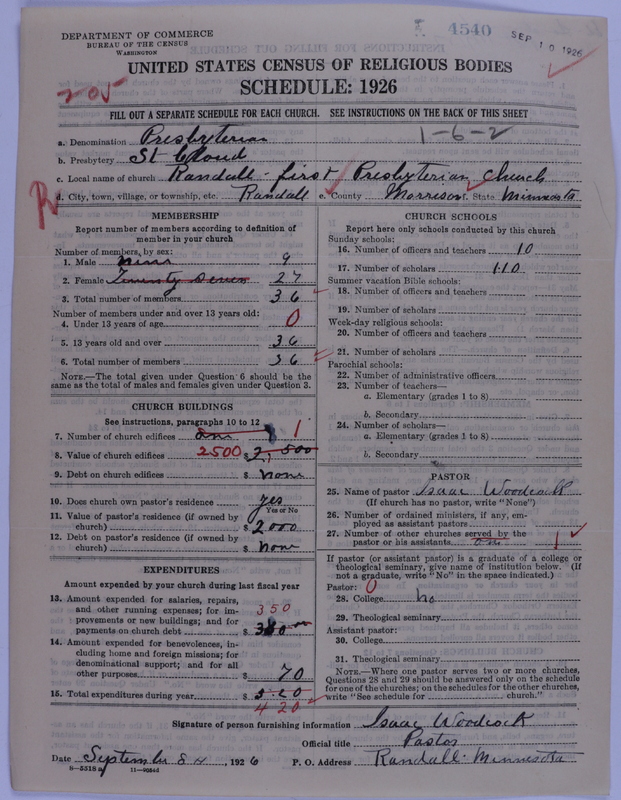 4540
SEP 10 1926
DEPARTMENT OF COMMERCE
BUREAU OF THE CENSUS
WASHINGTON
UNITED STATES CENSUS OF RELIGIOUS BODIES
SCHEDULE: 1926
205
FILL OUT A SEPARATE SCHEDULE FOR EACH CHURCH. SEE INSTRUCTIONS ON THE BACK OF THIS SHEET
1-6-2
a. Denomination Presbyterian
b. Presbytery St Cloud
c. Local name of church Randall - first Presbyterian church
d. City, town, village, or township, etc. Randall e. County Morrison f. State Minnesota
MEMBERSHIP
Report number of members according to definition of
member in your church
Number of members, by sex:
1. Male nine 9
2. Female Twenty Seven 27
3. Total number of members 36
Number of members under and over 13 years old:
4. Under 13 years of age 0
5. 13 years old and over 36
6. Total number of members 36
NOTE.—The total given under Question 6 should be
same as the total of males and females given under Question 3.
CHURCH BUILDINGS
See instructions, paragraphs 10 to 12
7. Number of church edifices one 1
8. Value of church edifices 2500 $ 2,500
9. Debt on church edifices $ none
10. Does church own pastor's residence yes
Yes or No
11. Value of pastor's residence (if owned by
church) $ 2000
12. Debt on pastor's residence (if owned by
church) $ none
EXPENDITURES
Amount expended by your church during last fiscal year
13. Amount expended for salaries, repairs,
and other running expenses; for im-
provements or new buildings; and for
payments on church debt 350 $
14. Amount expended for benevolences, in-
cluding home and foreign missions; for
denominational support; and for all
other purposes $ 70
15. Total expenditures during year $
420
CHURCH SCHOOLS
Report here only schools conducted by this church
Sunday schools:
16. Number of officers and teachers 10
17. Number of scholars 110
Summer vacation Bible schools:
18. Number of officers and teachers
19. Number of scholars
Week-day religious schools:
20. Number of officers and teachers
21. Number of scholars
Parochial schools:
22. Number of administrative officers
23. Number of teachers—
a. Elementary (grades 1 to 8)
b. Secondary
24. Number of scholars—
a. Elementary (grades 1 to 8)
b. Secondary
PASTOR
25. Name of pastor Isaac Woodcock
(If church has no pastor, write "None")
26. Number of ordained ministers, if any, em-
ployed as assistant pastors
27. Number of other churches served by the
pastor or his assistants one 1
If pastor (or assistant pastor) is a graduate of a college or
theological seminary, give name of institution below. (If
not a graduate, write "No" in the space indicated.)
Pastor: 0
28. College no
29. Theological seminary
Assistant pastor:
30. College
31. Theological seminary
NOTE.—Where one pastor serves two or more churches,
Questions 28 and 29 should be answered only on the schedule
for one of the churches; on the schedules for the other churches,
write "See schedule for church."
Signature of person furnishing information Isaac Woodcock
Official title Pastor
Date September 8, 1926 P. O. Address Randall Minnesota